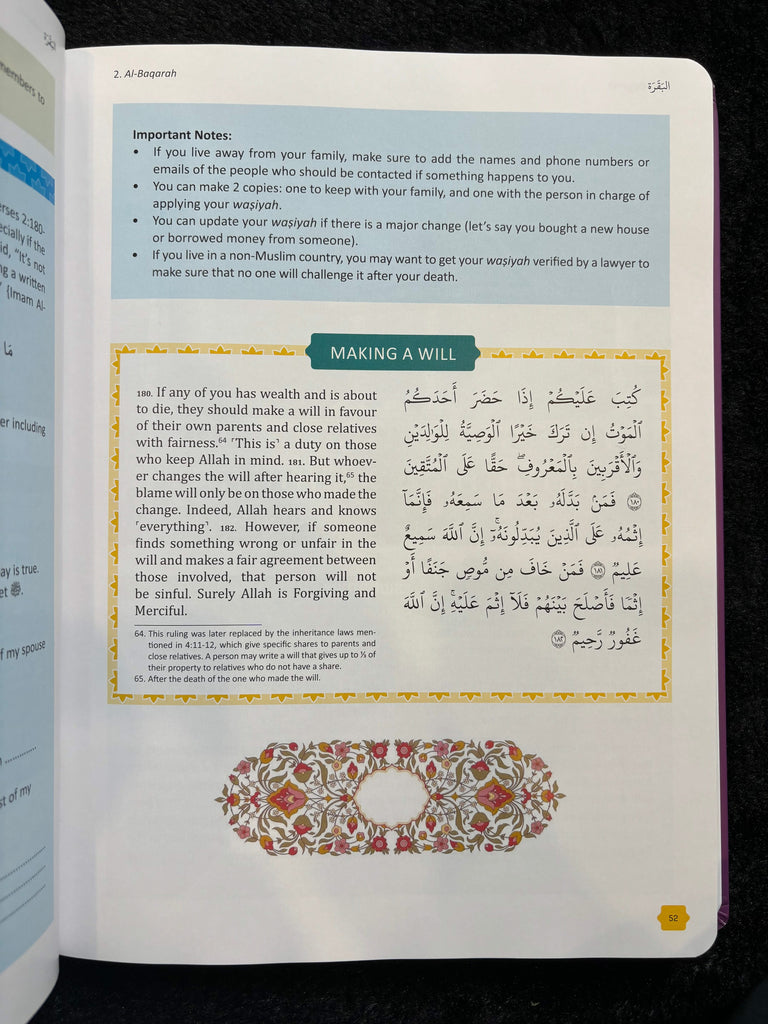 embers to
rses 2:180-
ecially if the
id, "It's not
ng a written
{Imam Al-
مَا
er including
ay is true.
et ﷺ.
f my spouse
st of my
2. Al-Baqarah
البَقَرَة
Important Notes:
• If you live away from your family, make sure to add the names and phone numbers or
emails of the people who should be contacted if something happens to you.
• You can make 2 copies: one to keep with your family, and one with the person in charge of
applying your waṣiyah.
• You can update your waṣiyah if there is a major change (let's say you bought a new house
or borrowed money from someone).
• If you live in a non-Muslim country, you may want to get your waṣiyah verified by a lawyer to
make sure that no one will challenge it after your death.
MAKING A WILL
180. If any of you has wealth and is about
to die, they should make a will in favour
of their own parents and close relatives
with fairness.⁶⁴ ˹This is˺ a duty on those
who keep Allah in mind. 181. But whoev-
er changes the will after hearing it,⁶⁵ the
blame will only be on those who made the
change. Indeed, Allah hears and knows
˹everything˺. 182. However, if someone
finds something wrong or unfair in the
will and makes a fair agreement between
those involved, that person will not
be sinful. Surely Allah is Forgiving and
Merciful.
64. This ruling was later replaced by the inheritance laws men-
tioned in 4:11-12, which give specific shares to parents and
close relatives. A person may write a will that gives up to ⅓ of
their property to relatives who do not have a share.
65. After the death of the one who made the will.
كُتِبَ عَلَيْكُمْ إِذَا حَضَرَ أَحَدَكُمُ
ٱلْمَوْتُ إِن تَرَكَ خَيْرًا ٱلْوَصِيَّةُ لِلْوَٰلِدَيْنِ
وَٱلْأَقْرَبِينَ بِٱلْمَعْرُوفِ ۖ حَقًّا عَلَى ٱلْمُتَّقِينَ
١٨٠ فَمَنۢ بَدَّلَهُۥ بَعْدَ مَا سَمِعَهُۥ فَإِنَّمَآ
إِثْمُهُۥ عَلَى ٱلَّذِينَ يُبَدِّلُونَهُۥٓ ۚ إِنَّ ٱللَّهَ سَمِيعٌ
عَلِيمٌ ١٨١ فَمَنْ خَافَ مِن مُّوصٍ جَنَفًا أَوْ
إِثْمًا فَأَصْلَحَ بَيْنَهُمْ فَلَآ إِثْمَ عَلَيْهِ ۚ إِنَّ ٱللَّهَ
غَفُورٌ رَّحِيمٌ ١٨٢
52